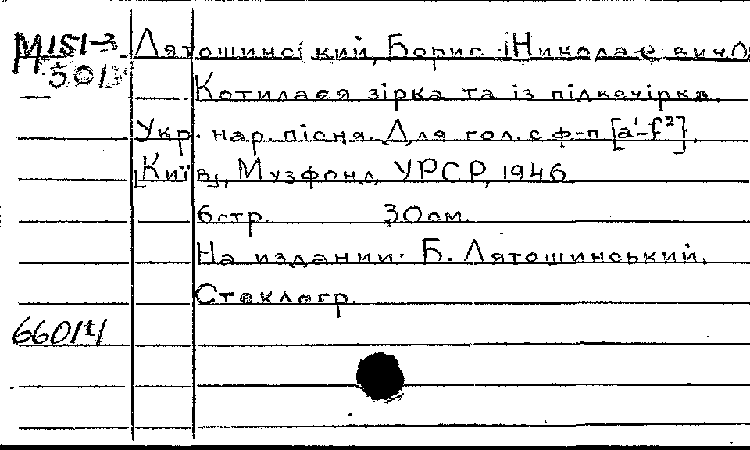 М151-3
501
Лятошинський, Борис (Николаевич)
Котилася зірка та із підвечірка.
Укр. нар. пісня. Для гол. с ф-п [a¹-f²].
[Київ], Музфонд УРСР, 1946
6 стр. 30 см.
На издании: Б. Лятошинський.
Стеклогр.